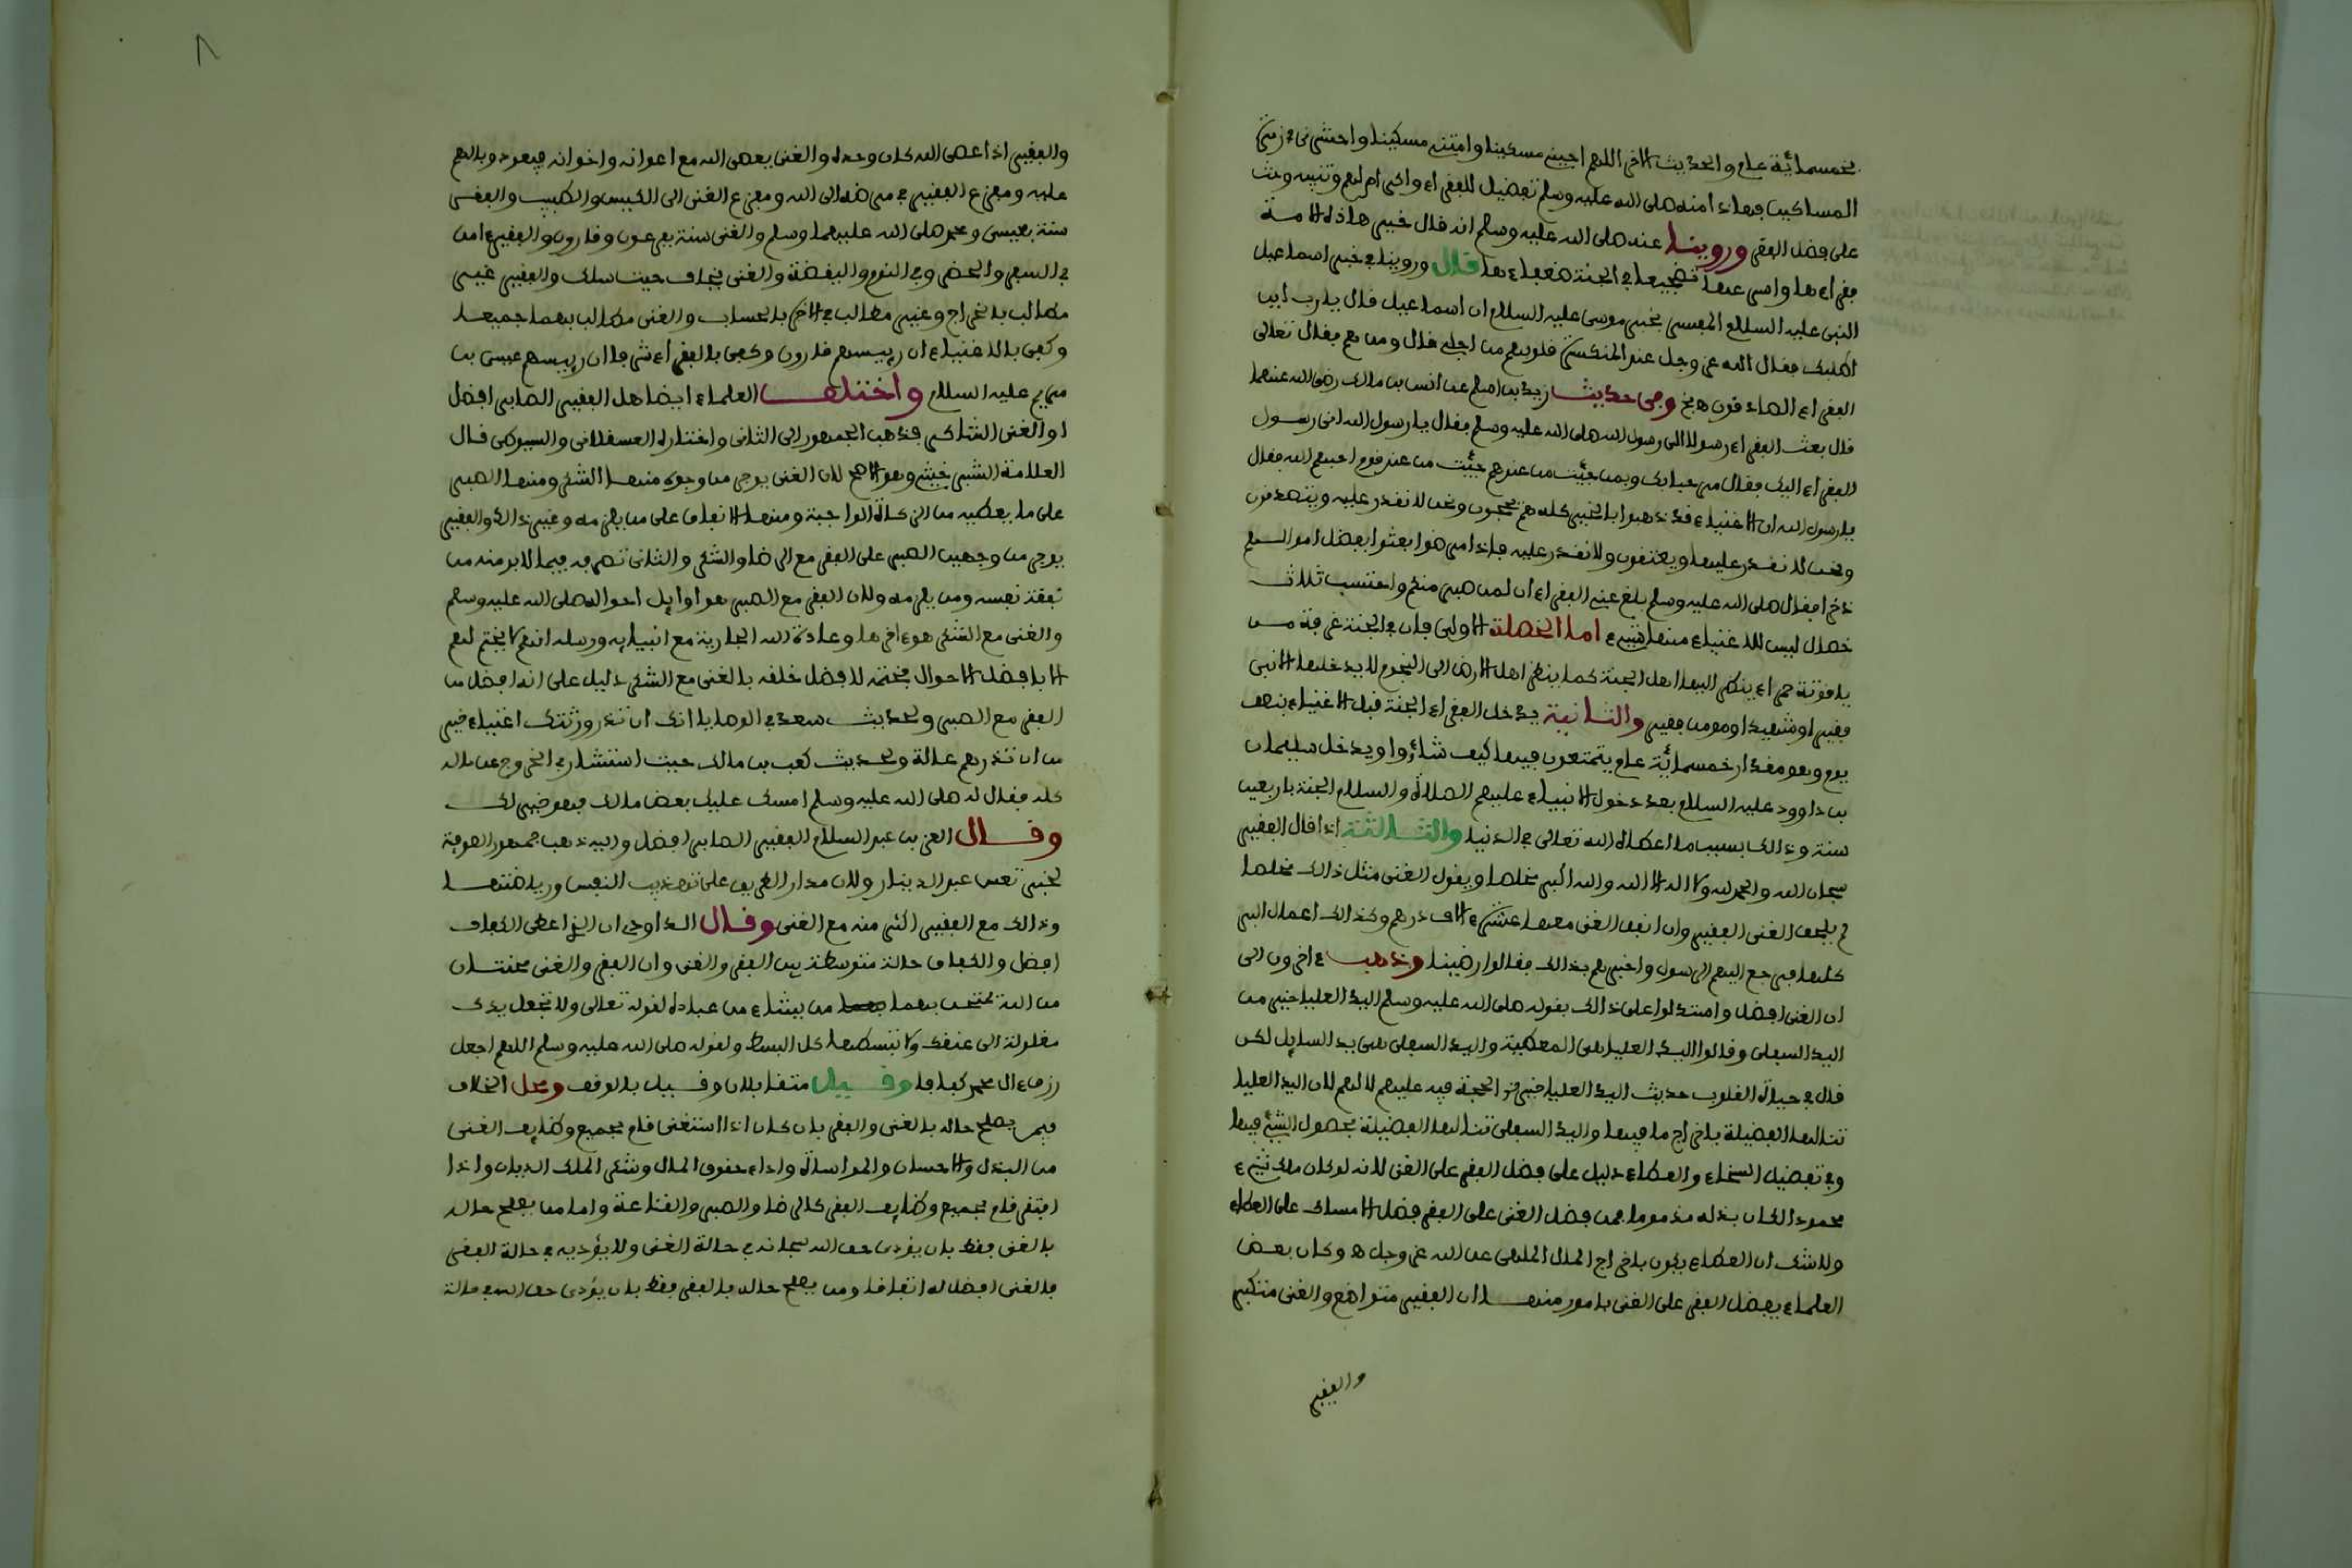 بخمسمائة عام والحديث الاخر اللهم احيني مسكينا وامتني مسكينا واحشرني في زمرة
المساكين فهاذا منه صلى الله عليه وسلم تفضيل للفقراء واكرام لهم وتنبيه وحث
على فضل الفقر وروينا عنه صلى الله عليه وسلم انه قال خير هاذه الامة
فقراءها واسرعها تضجعا في الجنة ضعفاءها قال وروينا في خبر اسماعيل
النبي عليه السلام المفسر بخبر موسى عليه السلام ان اسماعيل قال يارب اين
اطلبك فقال الله عز وجل عند المنكسرة قلوبهم من اجلي قال ومن هم فقال تعالى
الفقراء الصادقون وفي حديث زيد بن اسلم عن انس بن مالك رضي الله عنهما
قال بعث الفقراء رسولا الى رسول الله صلى الله عليه وسلم فقال يا رسول الله اني رسول
الفقراء اليك فقال مرحبا بك وبمن جئت من عندهم جئت من عند قوم احبهم الله فقال
يا رسول الله ان الاغنياء قد ذهبوا بالخير كله هم يحجون ونحن لا نقدر عليه ويتصدقون
ونحن لا نقدر عليها ويعتقون ولا نقدر عليه فاذا مرضوا بعثوا بفضل اموالهم
ذخرا فقال صلى الله عليه وسلم بلغ عني الفقراء ان لمن صبر منكم واحتسب ثلاث
خصال ليس للاغنياء منها شيء اما الخصلة الاولى فان في الجنة غرفة من
ياقوتة حمراء ينظر اليها اهل الجنة كما ينظر اهل الارض الى النجوم لا يدخلها الا نبي
فقير او شهيد او مومن فقير والثانية يدخل الفقراء الجنة قبل الاغنياء بنصف
يوم وهو مقدار خمسمائة عام يتمتعون فيها كيف شاءوا ويدخل سليمان
بن داوود عليه السلام بعد دخول الانبياء عليهم الصلاة والسلام الجنة باربعين
سنة وذالك بسبب ما اعطاه الله تعالى في الدنيا والثالثة اذا قال الفقير
سبحان الله والحمد لله ولا اله الا الله والله اكبر مخلصا ويقول الغني مثل ذالك مخلصا
لم يلحق الغني الفقير وان انفق الغني معها عشرة ءالاف درهم وكذالك اعمال البر
كلها فرجع اليهم الرسول واخبرهم بذالك فقالوا رضينا وذهب ءاخرون الى
ان الغنى افضل واستدلوا على ذالك بقوله صلى الله عليه وسلم اليد العليا خير من
اليد السفلى وقالوا اليد العليا هي المعطية واليد السفلى هي يد السايل لكن
قال في حياة القلوب حديث اليد العليا خير الحجة فيه عليهم لا لهم لان اليد العليا
تنالها الفضيلة باخراج ما فيها واليد السفلى تنالها الفضيلة بحصول الشيء فيها
وفي تفضيل السخاء والعطاء دليل على فضل الفقر على الغنى لانه لو كان ملك شيء
محمودا لكان بذله مذموما فمن فضل الغنى على الفقر فضل الامساك على العطاء
ولا شك ان العطاء يكون باخراج المال الملهي عن الله عز وجل وكان بعض
العلماء يفضل الفقر على الغنى بامور منها ان الفقير متواضع والغني متكبر
والفقير
٨
والفقير اذا عصى الله كان وحده والغني يعصي الله مع اعوانه واخوانه فيعود وبالهم
عليه ومفزع الفقير في مرضه الى الله ومفزع الغني الى الكيس والطبيب والفقر
سنة بعيسى ومحمد صلى الله عليهما وسلم والغنى سنة بفرعون وقارون والفقير ءامن
في السفر والحضر وفي النوم واليقضة والغني يخاف حيث سلك والفقير غير
مطالب بالخراج وغير مطالب في الاخرة بالحساب والغني مطالب بهما جميعا
وكفى بالاغنياء ان رييسهم قارون وكفى بالفقراء شرفا ان رييسهم عيسى بن
مريم عليه السلام واختلف العلماء ايضا هل الفقير الصابر افضل
او الغني الشاكر فذهب الجمهور الى الثاني واختاره العسقلاني والسيوطي قال
العلامة الشبرخيتي وهو الاصح لان الغني يوجر من وجوه منها الشكر ومنها الصبر
على ما يعطيه من الزكاة الواجبة ومنها الانفاق على من يلزمه وغير ذالك والفقير
يوجر من وجهين الصبر على الفقر مع الرضا والشكر والثاني تصرفه فيما لا بد منه من
نفقة نفسه ومن يلزمه ولان الفقر مع الصبر هو اوايل احواله صلى الله عليه وسلم
والغنى مع الشكر هو ءاخرها وعادة الله الجارية مع انبيايه ورسله انه لا يختم لهم
الا بافضل الاحوال فختمه لافضل خلقه بالغنى مع الشكر دليل على انه افضل من
الفقر مع الصبر ولحديث سعد في الوصايا انك ان تذر ورثتك اغنياء خير
من ان تذرهم عالة ولحديث كعب بن مالك حيث استشار في الخروج عن ماله
كله فقال له صلى الله عليه وسلم امسك عليك بعض مالك فهو خير لك
وقال العز بن عبد السلام الفقير الصابر افضل واليه ذهب جمهور الصوفية
لخبر تعس عبد الدينار ولان مدار الطريق على تهذيب النفس ورياضتها
وذالك مع الفقير اكثر منه مع الغني وقال الداودي ان الذي اعطي الكفاف
افضل والكفاف حالة متوسطة بين الفقر والغنى وان الفقر والغنى محنتان
من الله يمتحن بهما من يشاء من عباده لقوله تعالى ولا تجعل يدك
مغلولة الى عنقك ولا تبسطها كل البسط ولقوله صلى الله عليه وسلم اللهم اجعل
رزق ءال محمد كفافا وقيل متقابلان وقيل بالوقف ومحل الخلاف
فيمن يصلح حاله بالغنى والفقر بان كان اذا استغنى قام بجميع وظايف الغنى
من البذل والاحسان والمواساة واداء حقوق المال وشكر الملك الديان واذا
افتقر قام بجميع وظايف الفقر كالرضا والصبر والقناعة واما من يصلح حاله
بالغنى فقط بان يؤدي حق الله سبحانه في حالة الغنى ولا يؤديه في حالة الفقر
فالغنى افضل له اتفاقا ومن يصلح حاله بالفقر فقط بان يؤدي حق الله في حالة